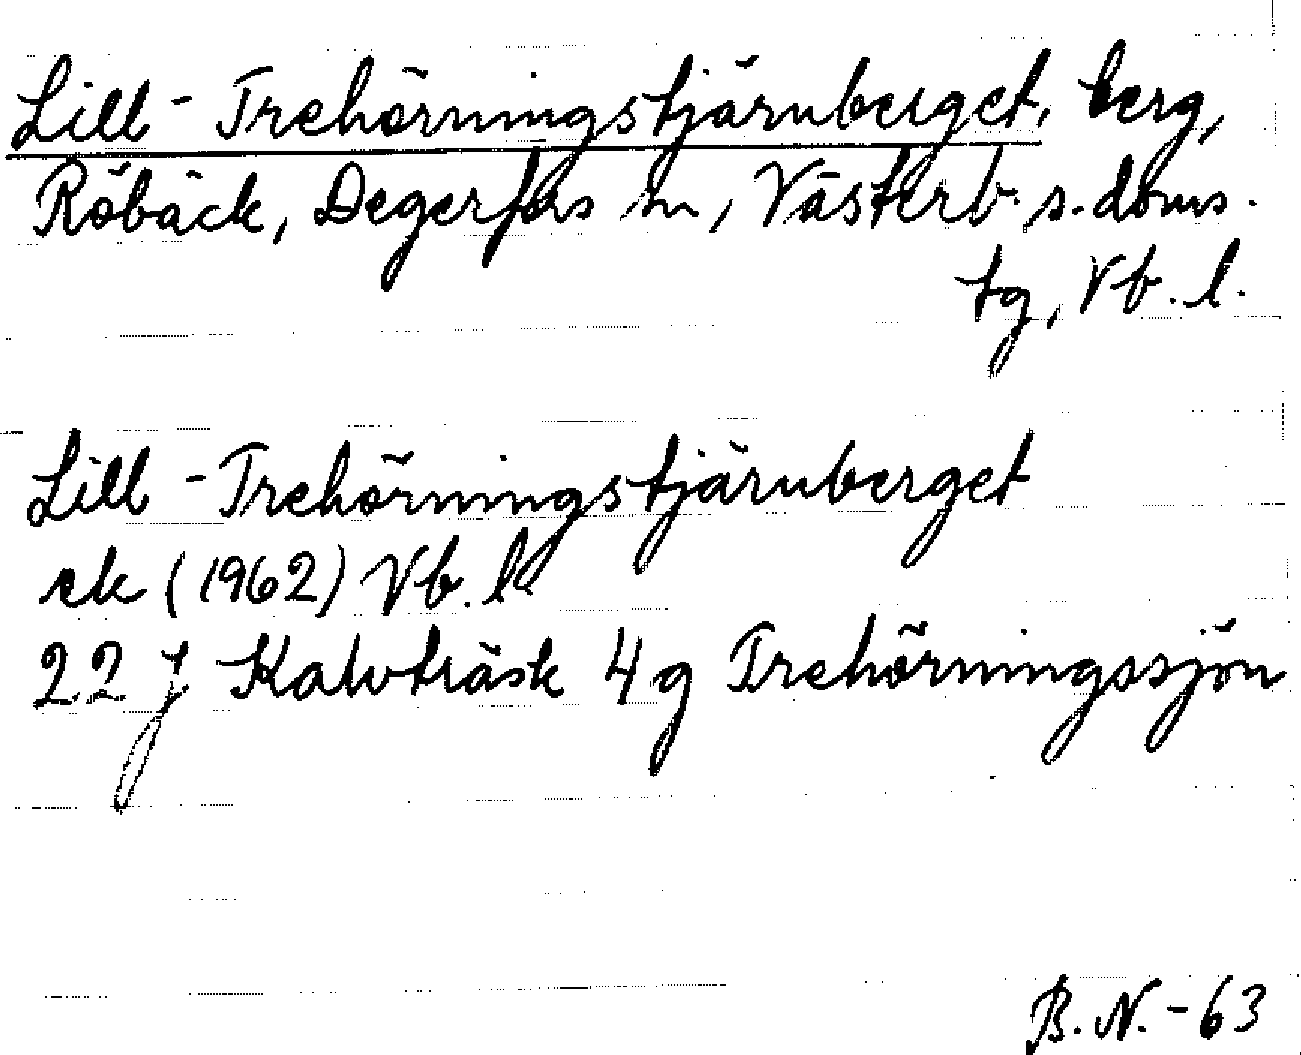 Lill-Trehörningstjärnberget, berg,
Röbäck, Degerfors sn, Västerb. s. doms.
tg, Vb. l.
Lill-Trehörningstjärnberget
ek (1962) Vb. l.
22 J Kalvträsk 4 g Trehörningssjön
B.N.-63